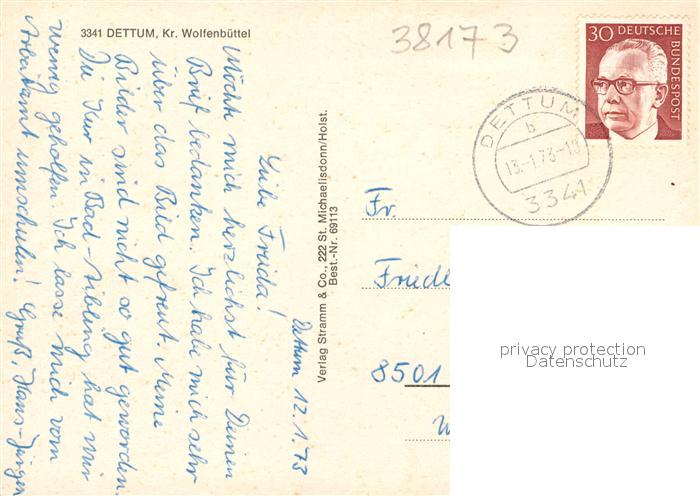 3341 DETTUM, Kr. Wolfenbüttel
38173
30 DEUTSCHE
BUNDESPOST
DETTUM
b
13.-1.73-18
3341
Dettum 12.1.73
Liebe Freida!
Möchte mich herzlichst für Deinen
Brief bedanken. Ich habe mich sehr
über das Bild gefreut. Meine
Bilder sind nicht so gut geworden.
Die Kur in Bad-Aibling hat mir
wenig geholfen. Ich lasse mich vom
Arbeitsamt umschulen! Gruß, Hans-Jürgen
Verlag Stramm & Co., 222 St. Michaelisdonn/Holst.
Best.-Nr. 69113
Fr.
Friedl
8501
W
privacy protection
Datenschutz